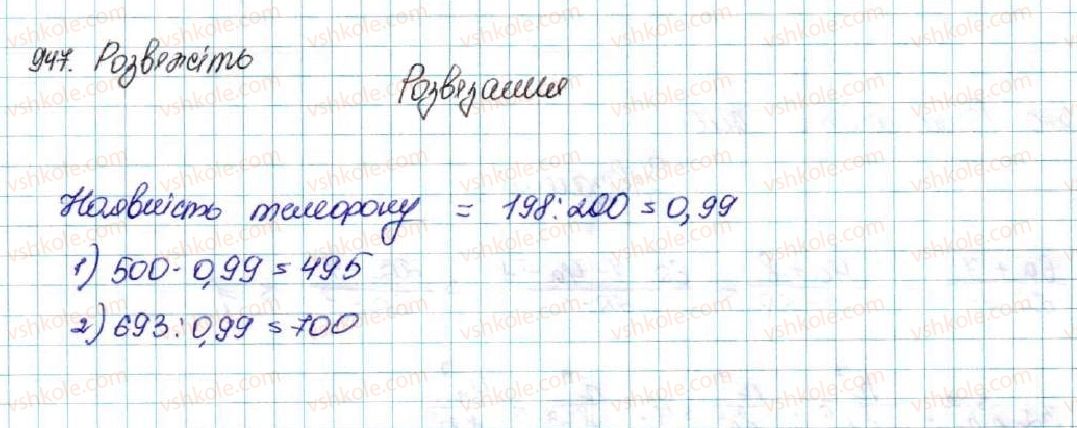 947. Розвяжіть
Розвязання
Наявність телефону = 198:200 = 0,99
1) 500 · 0,99 = 495
2) 693 : 0,99 = 700
vshkole.com